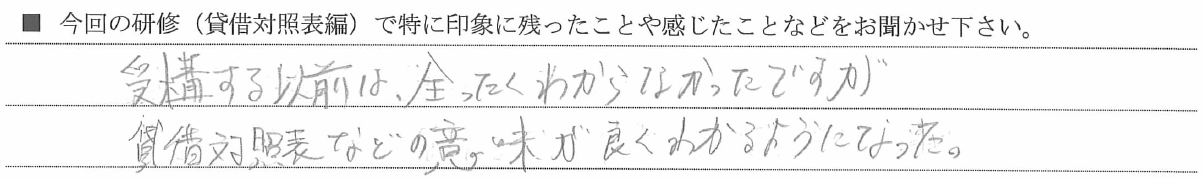 ■ 今回の研修（貸借対照表編）で特に印象に残ったことや感じたことなどをお聞かせ下さい。
受構する以前は、全ったくわからなかったですが
貸借対照表などの意味が良くわかるようになった。